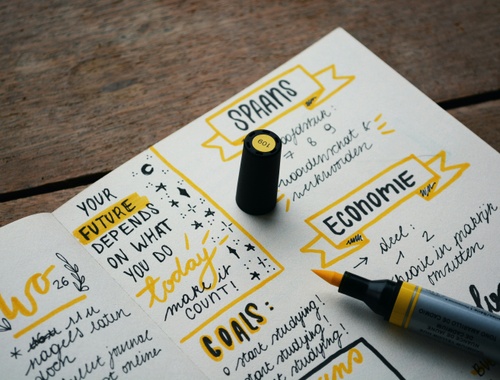 Wo
26
11 u
nagels laten
doch
bullet journal
et online
YOUR
FUTURE
DEPENDS
ON WHAT
YOU DO
today
make it
COUNT!
GOALS:
start studying!
start studying!
start studying!
SPAANS
hoofdstuk:
7 8 9
woordenschat &
werkwoorden
109
ECONOMIE
→ deel:
1 2
theorie in makkelijk